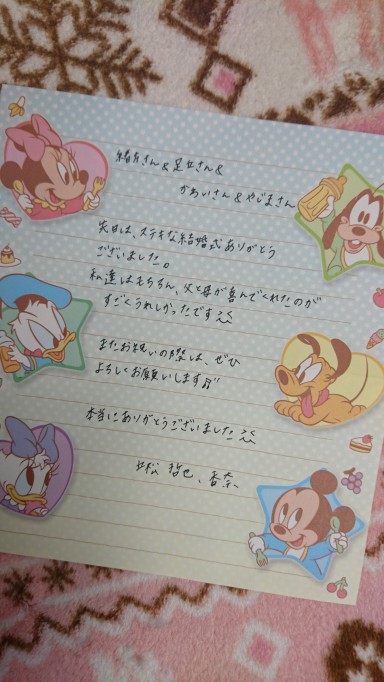 緒方さん&足立さん&
かわいさん&やじまさん
先日は、ステキな結婚式ありがとう
ございました。
私達はもちろん、父と母が喜んでくれたのが
すごくうれしかったです
またお祝いの際は、ぜひ
よろしくお願いします♬
本当にありがとうございました
松 哲也、香奈